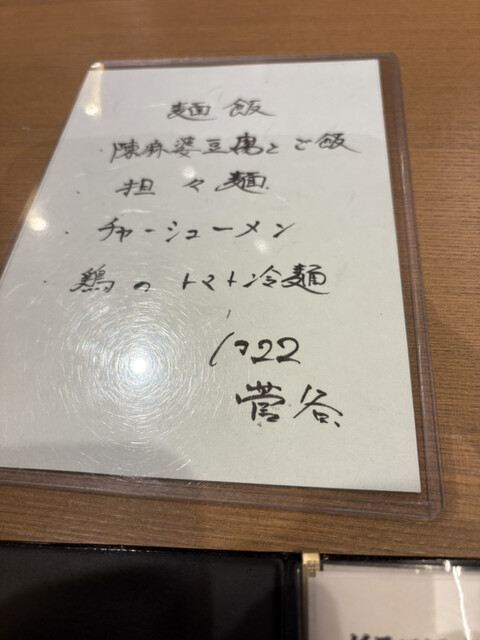 麺飯
・陳麻婆豆腐とご飯
・担々麺
・チャーシューメン
・鶏のトマト冷麺
1022
菅谷